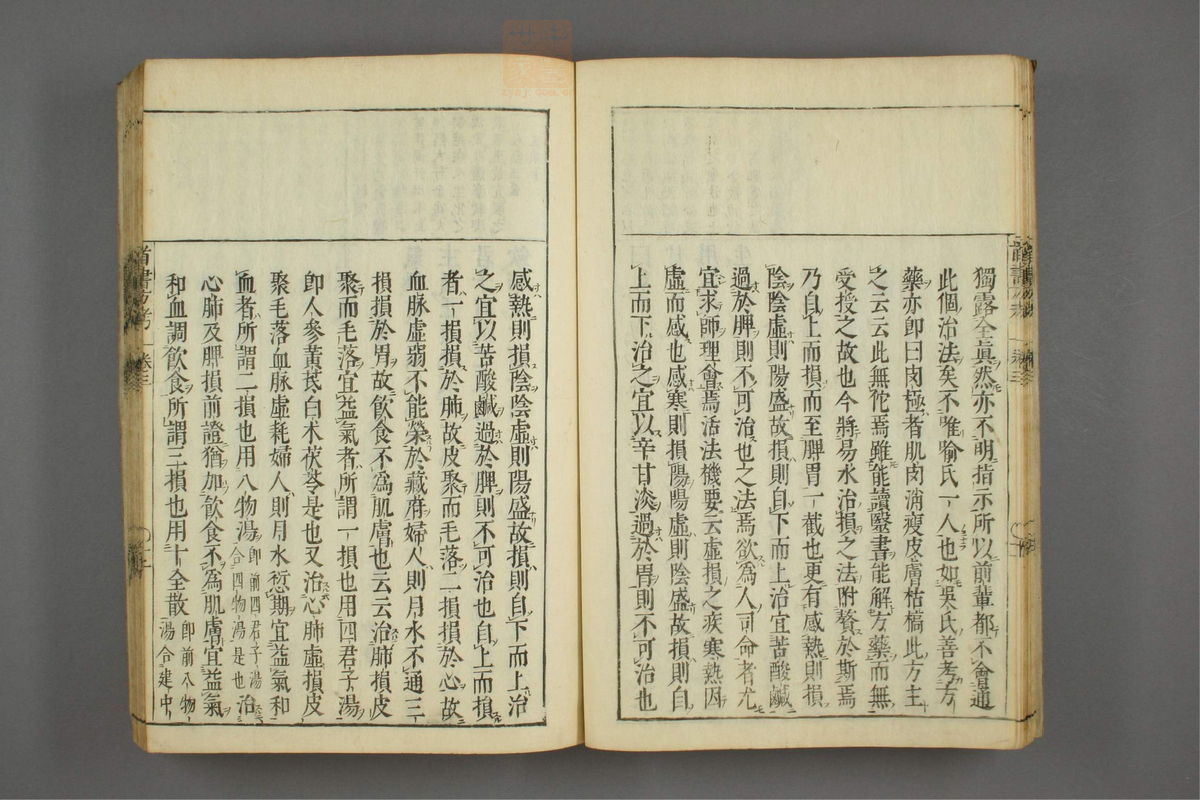 獨露全眞然亦不明指示所以前輩都不會通
此個治法矣不唯喻氏一人也如吳氏善考方
藥亦即曰肉極者肌肉消瘦皮膚枯槁此方主
之云云此無佗焉雖能讀醫書能解方藥而無
受授之故也今將易水治損之法附贅於斯焉
乃自上而損而至脾胃一截也更有感熱則損
陰陰虛則陽盛故損則自下而上治宜苦酸鹹
過於脾則不可治也之法焉欲為人司命者尤
宜求師理會焉活法機要云虛損之疾寒熱因
虛而感也感寒則損陽陽虛則陰盛故損則自
上而下治之宜以辛甘淡過於胃則不可治也
感熱則損陰陰虛則陽盛故損則自下而上治
之宜以苦酸鹹過於脾則不可治也自上而損
者一損損於肺故皮聚而毛落二損損於心故
血脉虛弱不能榮於藏府婦人則月水不通三
損損於胃故飲食不為肌膚也云云治肺損皮
聚而毛落宜益氣者所謂一損也用四君子湯
即人參黃芪白术茯苓是也又治心肺虛損皮
聚毛落血脉虛耗婦人則月水愆期宜益氣和
血者所謂二損也用八物湯即前四君子湯合四物湯是也治
心肺及脾損前證猶加飲食不為肌膚宜益氣
和血調飲食所謂三損也用十全散即前八物湯合建中
卷三